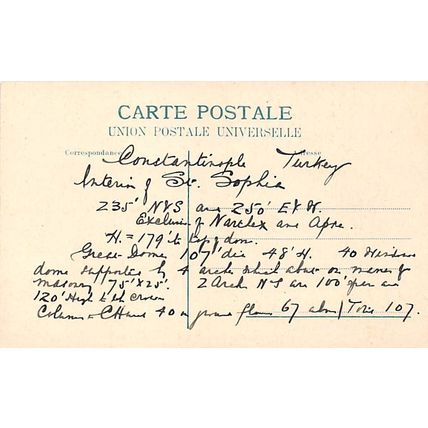 CARTE POSTALE
UNION POSTALE UNIVERSELLE
Correspondance Adresse
Constantinople Turkey
Interior of St. Sophia
235' N & S and 250' E & W.
Exclusive of Narthex and Apse.
H. = 179' to top of dome.
Great Dome 107' dia 48' H. 40 Windows
dome supported by 4 arches which on
masonry 75' x 25'. 2 Arch N S are 100' span and
120' High to the crown
Columns 40 on ground floor 67 above / Total 107.